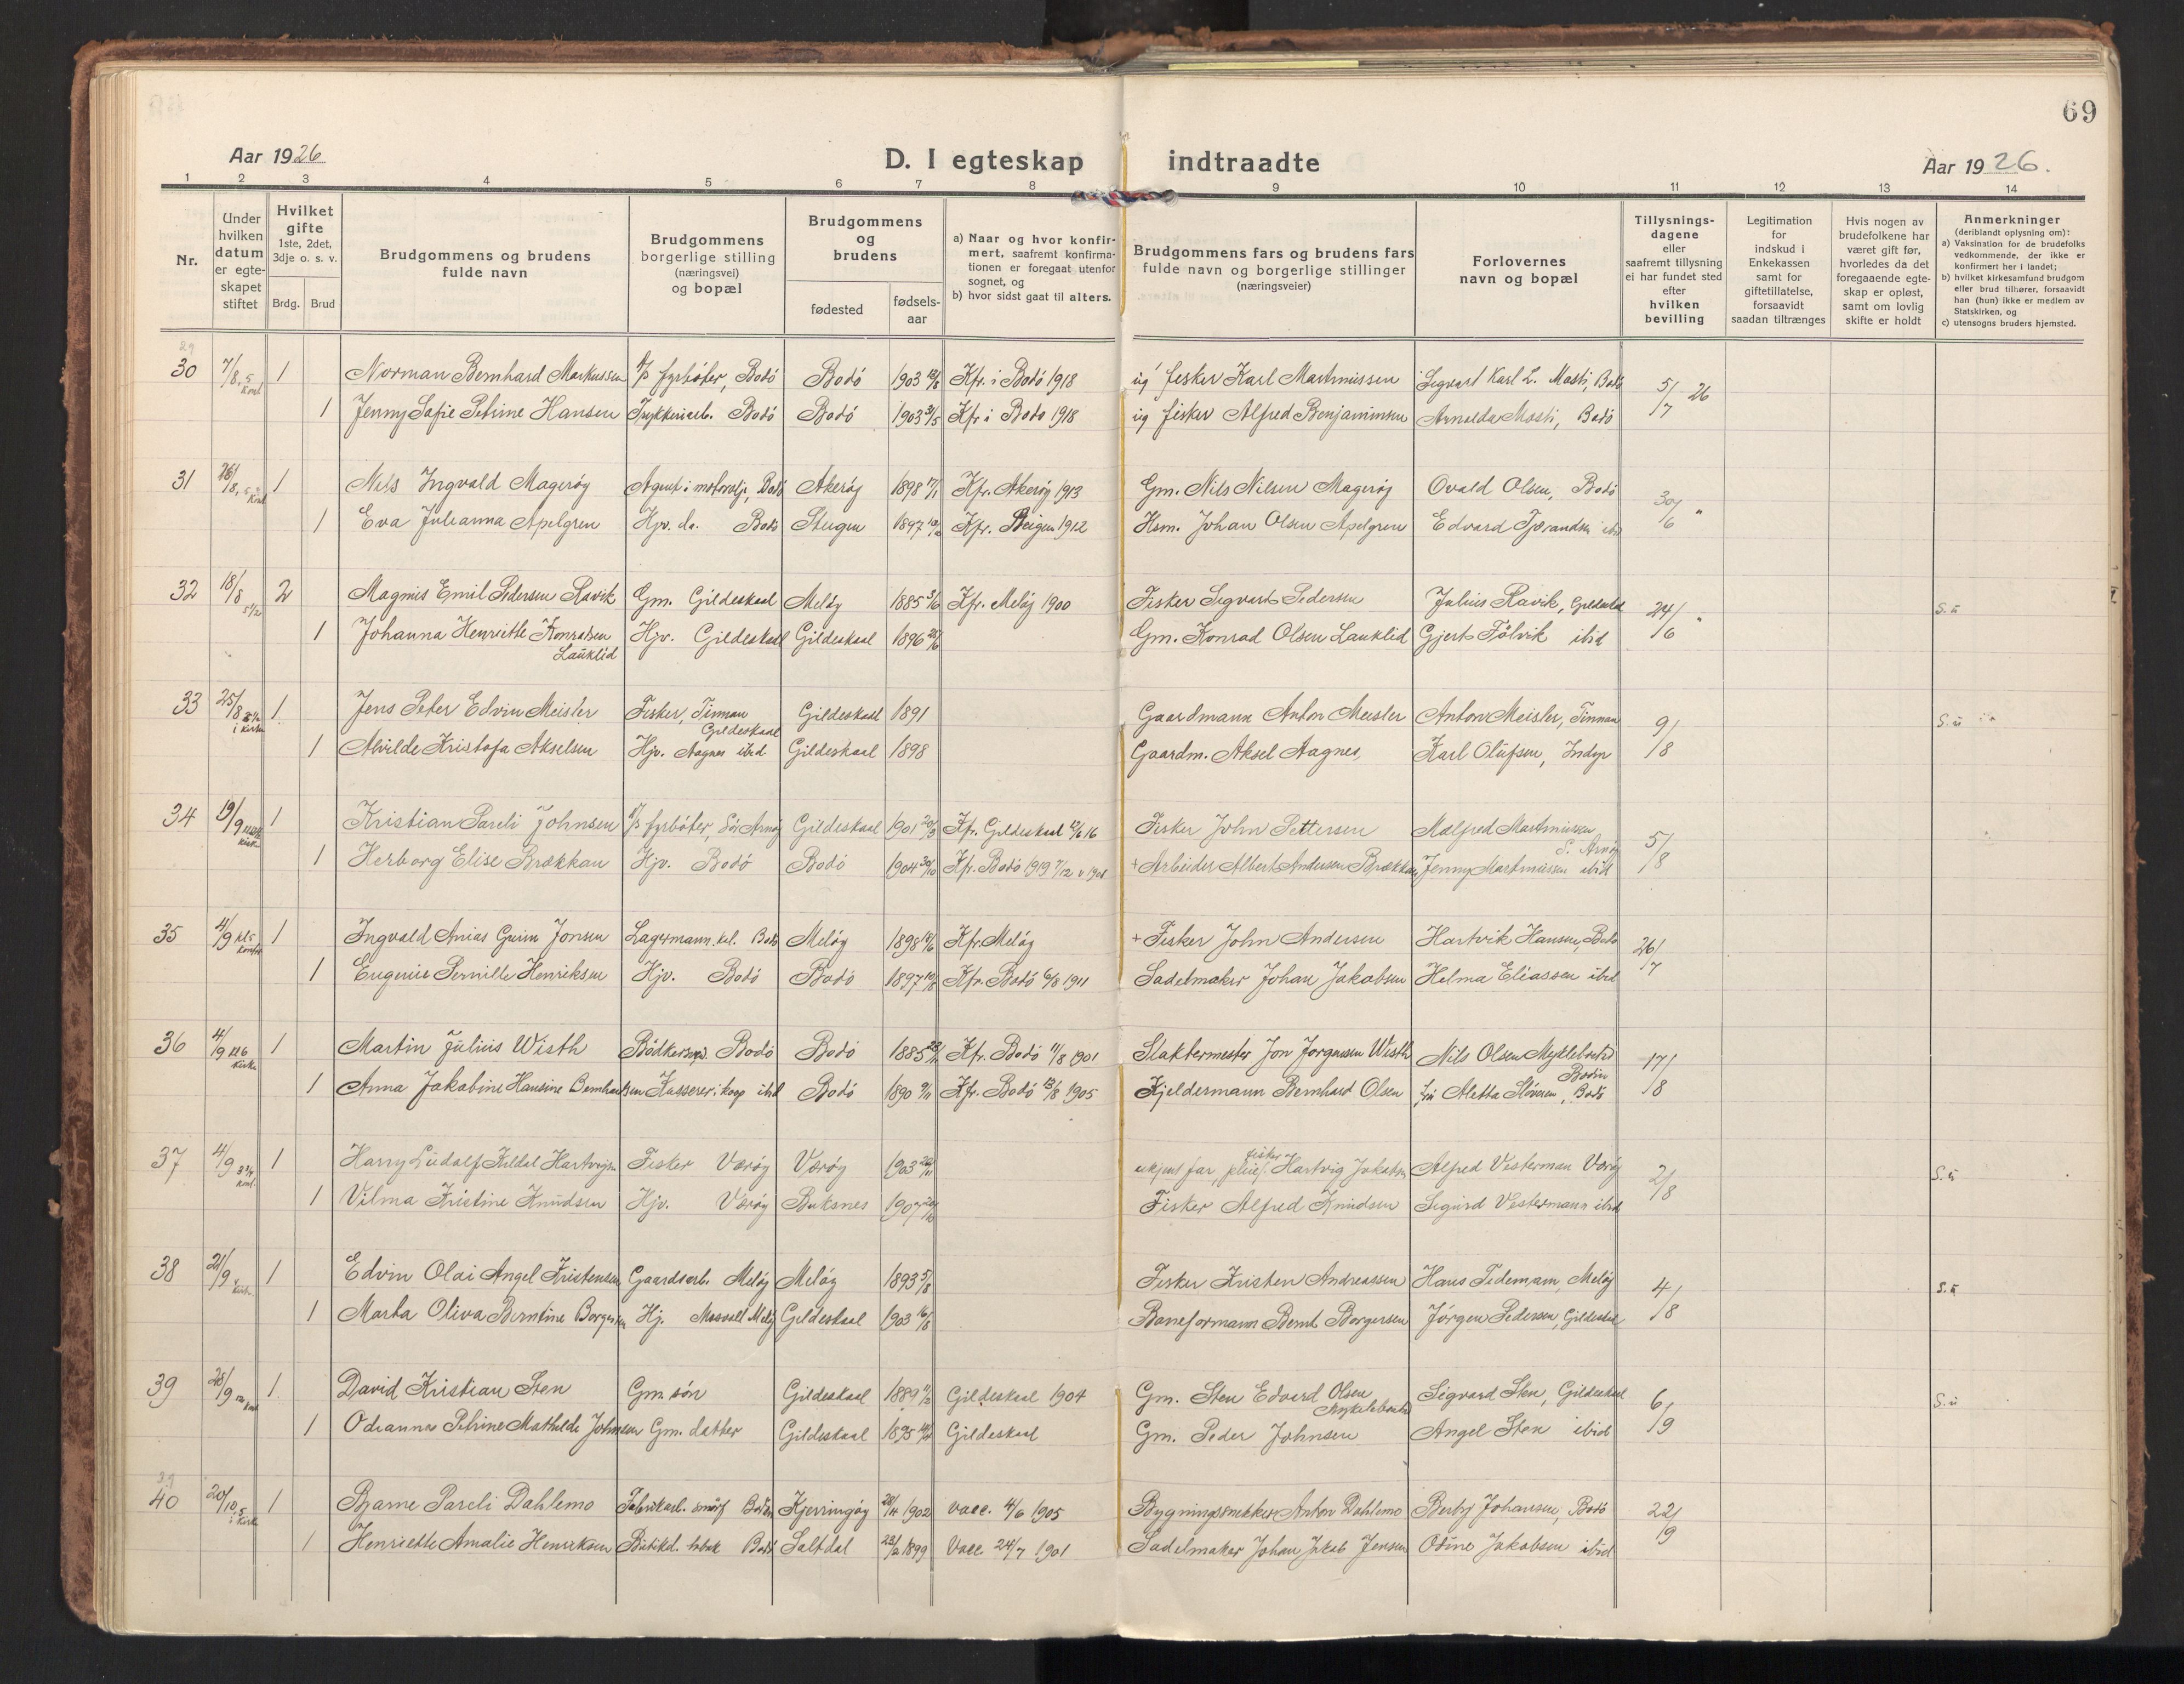 69
Aar 1926
D. I egteskap indtraadte
Aar 1926.
1 2 3 4 5 6 7 8 9 10 11 12 13 14
Nr.
Under hvilken datum er egteskapet stiftet
Hvilket gifte 1ste, 2det, 3dje o. s. v.
Brdg. Brud
Brudgommens og brudens fulde navn
Brudgommens borgerlige stilling (næringsvei) og bopæl
Brudgommens og brudens
fødested
fødsels-aar
a) Naar og hvor konfirmert, saafremt konfirmationen er foregaat utenfor sognet, og
b) hvor sidst gaat til alters.
Brudgommens fars og brudens fars fulde navn og borgerlige stillinger (næringsveier)
Forlovernes navn og bopæl
Tillysningsdagene eller saafremt tillysning ei har fundet sted efter hvilken bevilling
Legitimation for indskud i Enkekassen samt for giftetillatelse, forsaavidt saadan tiltrænges
Hvis nogen av brudefolkene har været gift før, hvorledes da det foregaaende egteskap er opløst, samt om lovlig skifte er holdt
Anmerkninger (deriblandt oplysning om):
a) Vaksination for de brudefolks vedkommende, der ikke er konfirmert her i landet;
b) hvilket kirkesamfund brudgom eller brud tilhører, forsaavidt han (hun) ikke er medlem av Statskirken, og
c) utensogns bruders hjemsted.
30 7/8 1 Norman Bernhard Markussen fyrbøter, Bodö Bodö 1903 Kfr. i Bodö 1918 fisker Karl Martinussen Segvart Karl L. Mosti, Bodö 5/7 26
1 Jenny Sofie Petrine Hansen Trykkeriarb. Bodö Bodö 1903 3/5 Kfr i Bodö 1918 fisker Alfred Benjaminsen Arnolda Mosti, Bodö
31 1 Nils Ingvald Magerøy Agent i motorolje, Bodö Akerøy 1898 17/1 Kfr. Akerøy 1913 Gm. Nils Nilsen Magerøj Ovald Olsen, Bodö 30/6 "
1 Eva Julianna Apelgren Hjv. do. Bodö Steigen 1897 Kfr. Steigen 1912 Hsm. Johan Olsen Apelgren Edvard ibid
32 18/8 5 1/2 2 Magnus Emil Pedersen Ravik Gm. Gildeskaal Meløy 1885 3/6 Kfr. Meløj 1900 Fisker Segvart Pedersen Julius Ravik, Gildeskaal 24/6 " S. u
1 Johanna Henriette Konradsen Lauklid Hjv. Gildeskaal Gildeskaal 1896 Gm. Konrad Olsen Lauklid Gjert Følvik ibid
33 25/8 i kirken 1 Jens Peter Edvin Meisler Fisker, Finnan Gildeskaal Gildeskaal 1891 Gaardmann Anton Meisler Anton Meisler, Finnan 9/8 S. u
1 Alvilde Kristofa Akselsen Hjv. Aagnes ibid Gildeskaal 1898 Gaardm. Aksel Aagnes, Karl Olufsen, Indyr
34 19/9 kirk 1 Kristian Pareli Johnsen fyrbøter, Sör Arnöj Gildeskaal 1901 20/3 Kfr. Gildeskaal 16 Fisker John Pettersen Malfred Martinussen S. Arnöj 5/8
1 Herborg Elise Brækkan Hjv. Bodö Bodö 1904 30/10 Kfr. Bodö 1919 7/12 v 1908 + Arbeider Albert Andersen Brækkan Jenny Martinussen ibid
35 4/9 kl 5 1 Ingvald Anias Grim Jonsen Lagermann. kul. Bodö Meløy 1898 Kfr Meløy + Fisker John Andersen Hartvik Hansen, Bodö 26/7
1 Eugenie Pernille Henriksen Hjv. Bodö Bodö 1897 Kfr. Bodö 6/8 1911 Sadelmaker Johan Jakobsen Helma Eliassen ibid
36 4/9 kl 6 kirke 1 Martin Julius Wisth Bödkersvd. Bodö Bodö 1885 Kfr. Bodö 11/8 1901 Slaktermester Jon Jörgensen Wisth Nils Olsen Myklebostad Bodin 17/8
1 Anna Jakobine Hansine Bernhardsen Kasserer i koop ibid Bodö 1890 9/11 Kfr. Bodö 13/8 1905 Kjeldermann Bernhard Olsen fru Aletta Stövsen, Bodö
37 4/9 1 Harry Ludolf Kildal Hartvigsen Fisker Værøy Værøy 1903 ukjent far, pleief. fisker Hartvig Jakobsen Alfred Vesterman Værøy 2/8 S. u
1 Vilma Kristine Knudsen Hjv. Værøy Buksnes 1907 Fisker Alfred Knudsen Sigurd Vestermann ibid
38 21/9 kirke 1 Edvin Olai Angel Kristensen Gaardsarb. Meløy Meløy 1893 5/8 Fisker Kristen Andreassen Hans Pedemann, Meløy 4/8 S. u
1 Marta Oliva Berntine Borgersen Hj. Mosvoll Meløy Gildeskaal 1903 16/8 Baneformann Bernt Borgersen Jörgen Pedersen, Gildeskaal
39 28/9 1 David Kristian Sten Gm. sön Gildeskaal 1889 11/2 Gildeskaal 1904 Gm. Sten Edvard Olsen Myklebostad Sigvard Sten, Gildeskaal 6/9 S. u
1 Odeanna Petrine Mathilde Johnsen Gm. datter Gildeskaal 1895 Gildeskaal Gm. Peder Johnsen Angel Sten ibid
40 20/10 5 i kirke 1 Bjarne Pareli Dahlemo Fabrikarb. smörf Bodin Kjerringøy 28/4 1902 vacc. 4/6 1905 Bygningssnekker Anton Dahlemo Berty Johansen, Bodö 22/9
1 Henriette Amalie Henriksen Butikd. tobak Bodö Saltdal 23/2 1899 Vacc 24/7 1901 Sadelmaker Johan Jakob Jensen Odine Jakobsen ibid